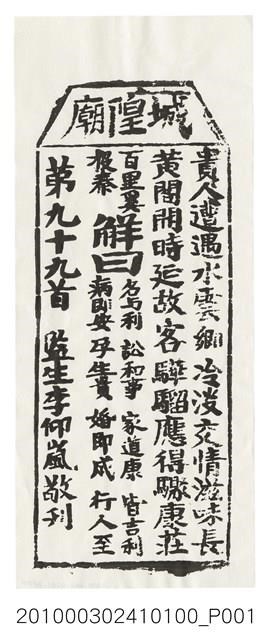 城隍廟
貴人遭遇水雲鄉 冷淡交情滋味長
黃閣開時延故客 驊騮應得驟康莊
百里奚投秦
解曰
名与利 訟和事 家道康 皆吉利
病即安 孕生貴 婚即成 行人至
第九十九首 監生李仰嵐敬刊
201000302410100_P001